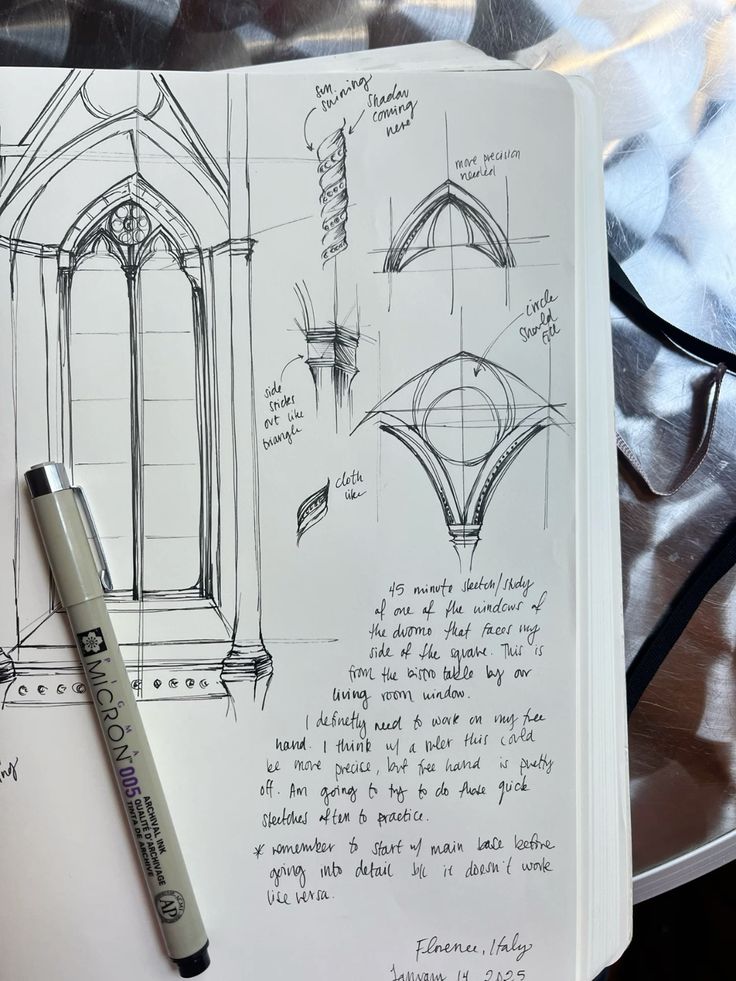 sun shining
shadow
coming
here
more precision
needed
circle
should
fit
side
sticks
out like
triangle
cloth
like
45 minute sketch/study
of one of the windows of
the duomo that faces my
side of the square. This is
from the bistro table by our
living room window.
I definetly need to work on my free
hand. I think w/ a ruler this could
be more precise, but free hand is pretty
off. Am going to try to do these quick
sketches often to practice.
* remember to start w/ main base before
going into detail b/c it doesn't work
vise versa.
Florence, Italy
January 14 2025
PIGMA
MICRON
005
ARCHIVAL INK
QUALITÉ D'ARCHIVAGE
TINTA DE ARCHIVE
AP